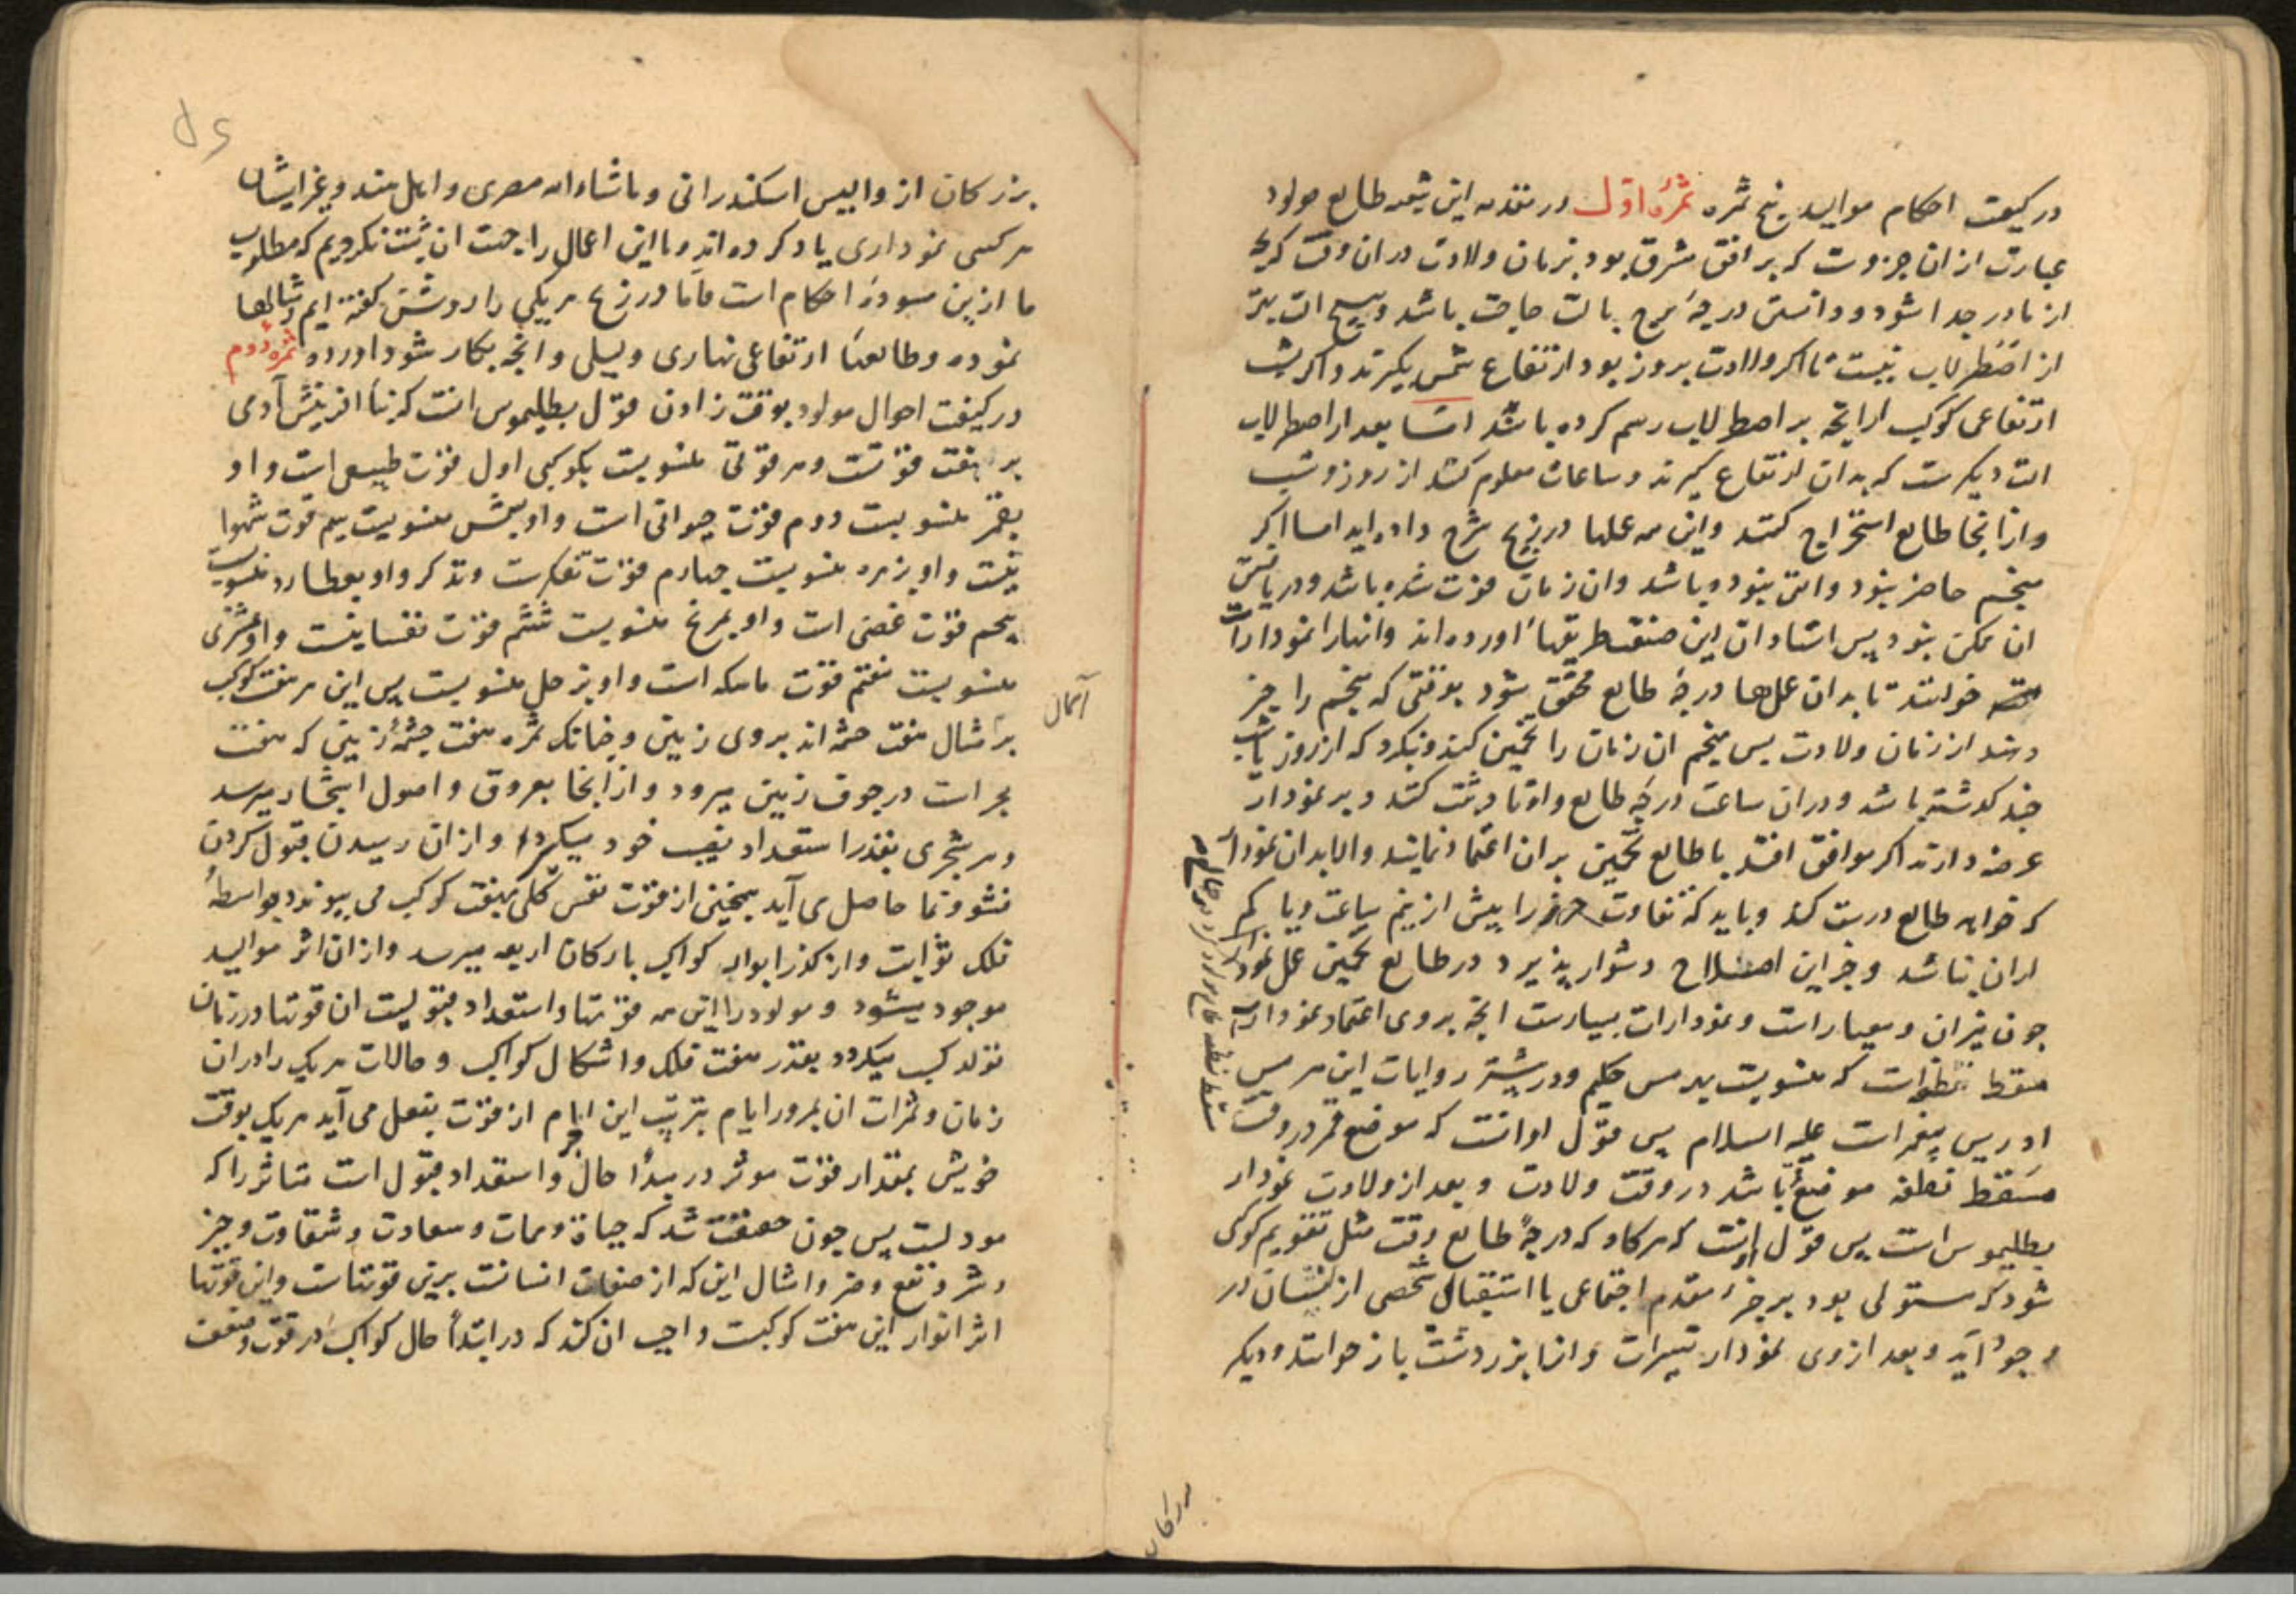 در کیفیت احکام موالید پنج ثمره ثمرهٔ اوّل در مقدمه این شعبه طالع مولود
عبارت از ان جزوست که بر افق مشرق بود بزمان ولادت در ان وقت که
از مادر جدا شود و دانستن درجهٔ برج بالت حاجت باشد و هیچ الت بهتر
از اضطرلاب نیست تا اکر ولادت بروز بود ارتفاع شمس بکیرند و اکر بشب
ارتفاعی کوکب از انچه بر اصطرلاب رسم کرده باشد امّا بعد از اصطرلاب
الت دیکرست که بدان ارتفاع کیرند و ساعات معلوم کنند از روز و شب
و از انجا طالع استخراج کنند و این همه عملها در زیج شرح داده اید اما اکر
منجم حاضر نبود و التی نبوده باشد و ان زمان فوت شده باشد و دریافتن
ان ممکن نبود پس استادان این صنعت طریقها اورده اند و انها را نمودارات
خوانند تا بدان عملها درجهٔ طالع محقق شود بوقتی که منجم را خبر
دهند از زمان ولادت پس منجم ان زمان را تخمین کند و بنکرد که از روز یا شب
چند کذشته باشد و دران ساعت درجهٔ طالع و اوتاد ثبت کند و بر نمودار
عرضه دارند اکر موافق افتد با طالع تخمین بران اعتماد نمایند والا بدان نمودار
که خواهد طالع درست کند و باید که تفاوت را بیش از نیم ساعت و یا کم
ازان نباشد و جز این اصلاح دشوار پذیرد در طالع تخمین عمل نمودار
چون میزان و معیار است و نمودارات بسیارست انچه بروی اعتماد نمودارست
مسقط نطفه است که منسوبست بهرمس حکیم و در بیشتر روایات این هرمس
ادریس پیغمبرات علیه السلام پس قول او انست که موضع قمر در وقت
مسقط نطفه موضع باشد در وقت ولادت و بعد از ولادت نمودار
بطلیموس است پس قول او انست که هرکاه که درجهٔ طالع وقت مثل تقویم کوکبی
شود که مستولی بود بر جزء مقدم اجتماعی یا استقبالی شخصی از انسان در
وجود آید و بعد از وی نمودار و انرا بزردشت باز خوانند و دیکر
مسقط نطفه طالع مولود
بزرکان از والیس اسکندرانی و ماشاءاله مصری و اهل هند و غیر ایشان
هرکسی نموداری یاد کرده اند و ما این اعمال را جهت ان ثبت نکردیم که مطلوب
ما ازین مسوده احکام است فامّا در زیج هر یکی را روشن کفته ایم و مثالها
نموده و طالعها ارتفاعی نهاری و لیلی و انچه بکار شود اورده ثمرهٔ دوم
در کیفیت احوال مولود بوقت زادن قول بطلیموس انست که بناء افرینش آدمی
بر هفت قوتست و هر قوتی منسوبست بکوکبی اول قوت طبیعی است و او
بقمر منسوبست دوم قوت حیوانی است و او بشمس منسوبست سیم قوت شهوا
نیست و او بزهره منسوبست چهارم قوت تفکرست و تذکر و او بعطارد منسوبست
پنجم قوت غضبی است و او بمریخ منسوبست ششم قوت نفسانیست و او بمشتری
منسوبست هفتم قوت ماسکه است و او بزحل منسوبست پس این هر هفت کوکب
بر مثال هفت چشمه اند بروی زمین و چنانک ثمره هفت چشمهٔ زمینی که هفت
بحر است در جوف زمین میرود و از انجا بعروق و اصول اشجار میرسد
و هر شجری بقدر استعداد نصیب خود میکیرد و از ان رسیدن قبول کردن
نشو و نما حاصل می آید همچنین از قوت نفس کلی بهفت کوکب می پیوندد بواسطهٔ
فلک ثوابت و از کذر ابواب کواکب بارکان اربعه میرسد و ازان اثر موالید
موجود میشود و مولود را این همه قوتها و استعداد قبولیت ان قوتها در زمان
تولد کسب میکردد بقدر هفت فلک و اشکال کواکب و حالات هر یک را دران
زمان و ثمرات ان بمرور ایام بترتیب این ایام از قوت بفعل می آید هر یک بوقت
خویش بمقدار قوت موثر در مبدأ حال و استعداد قبول است متاثر را که
مولدست پس چون حقیقت شد که حیاة و ممات و سعادت و شقاوت و خیر
و شر و نفع و ضر و امثال این که از صفات انسانست برین قوتهاست و این قوتها
اثر انوار این هفت کوکبست واجب ان کند که در ابتداً حال کواکب در قوت و ضعف